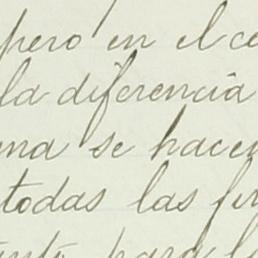 pero en el ce
la diferencia
ma se hacen
todas las fer
para l